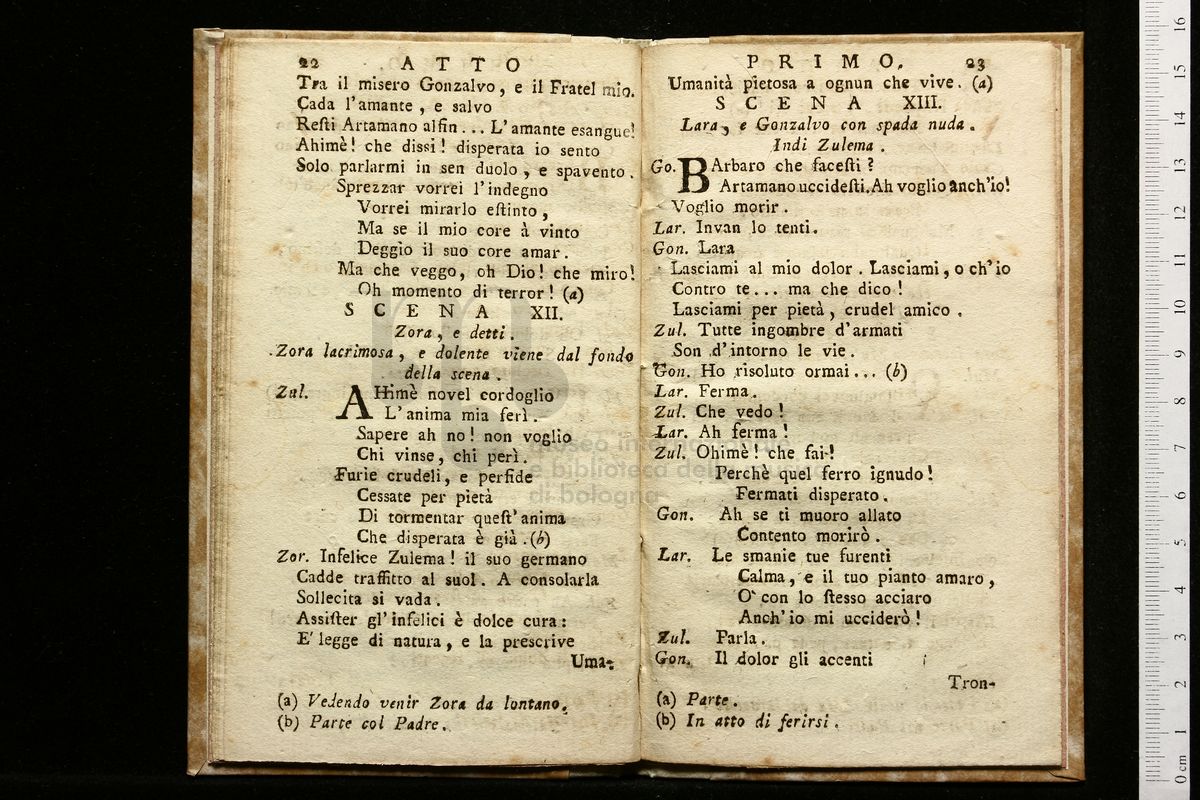 22 ATTO
Tra il misero Gonzalvo, e il Fratel mio.
Cada l'amante, e salvo
Resti Artamano alfin... L'amante esangue!
Ahimè! che dissi! disperata io sento
Solo parlarmi in sen duolo, e spavento.
Sprezzar vorrei l'indegno
Vorrei mirarlo estinto,
Ma se il mio core à vinto
Deggio il suo core amar.
Ma che veggo, oh Dio! che miro!
Oh momento di terror! (a)
SCENA XII.
Zora, e detti.
Zora lacrimosa, e dolente viene dal fondo
della scena.
Zul. AHimè novel cordoglio
L'anima mia ferì.
Sapere ah no! non voglio
Chi vinse, chi perì.
Furie crudeli, e perfide
Cessate per pietà
Di tormentar quest'anima
Che disperata è già. (b)
Zor. Infelice Zulema! il suo germano
Cadde traffitto al suol. A consolarla
Sollecita si vada.
Assister gl'infelici è dolce cura:
E' legge di natura, e la prescrive
Uma-
(a) Vedendo venir Zora da lontano.
(b) Parte col Padre.
PRIMO. 23
Umanità pietosa a ognun che vive. (a)
SCENA XIII.
Lara, e Gonzalvo con spada nuda.
Indi Zulema.
Go. BArbaro che facesti?
Artamano uccidesti. Ah voglio anch'io!
Voglio morir.
Lar. Invan lo tenti.
Gon. Lara
Lasciami al mio dolor. Lasciami, o ch'io
Contro te... ma che dico!
Lasciami per pietà, crudel amico.
Zul. Tutte ingombre d'armati
Son d'intorno le vie.
Gon. Ho risoluto ormai... (b)
Lar. Ferma.
Zul. Che vedo!
Lar. Ah ferma!
Zul. Ohimè! che fai!
Perchè quel ferro ignudo!
Fermati disperato.
Gon. Ah se ti muoro allato
Contento morirò.
Lar. Le smanie tue furenti
Calma, e il tuo pianto amaro,
O' con lo stesso acciaro
Anch'io mi ucciderò!
Zul. Parla.
Gon. Il dolor gli accenti
Tron-
(a) Parte.
(b) In atto di ferirsi.
museo internazionale
e biblioteca della musica
di bologna
0 cm 1 2 3 4 5 6 7 8 9 10 11 12 13 14 15 16